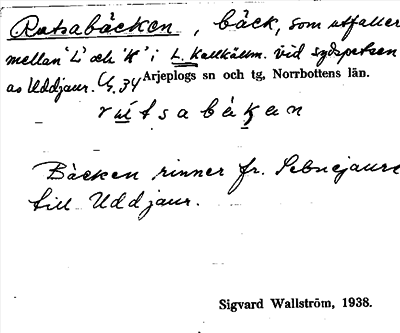 Rutsabäcken, bäck, som utfaller
mellan 'L' och 'K' i L. Kallkällm. vid sydspetsen
av Uddjaur. G. 34
Arjeplogs sn och tg, Norrbottens län.
rútsabäkan
Bäcken rinner fr.
till Uddjaur.
Sigvard Wallström, 1938.